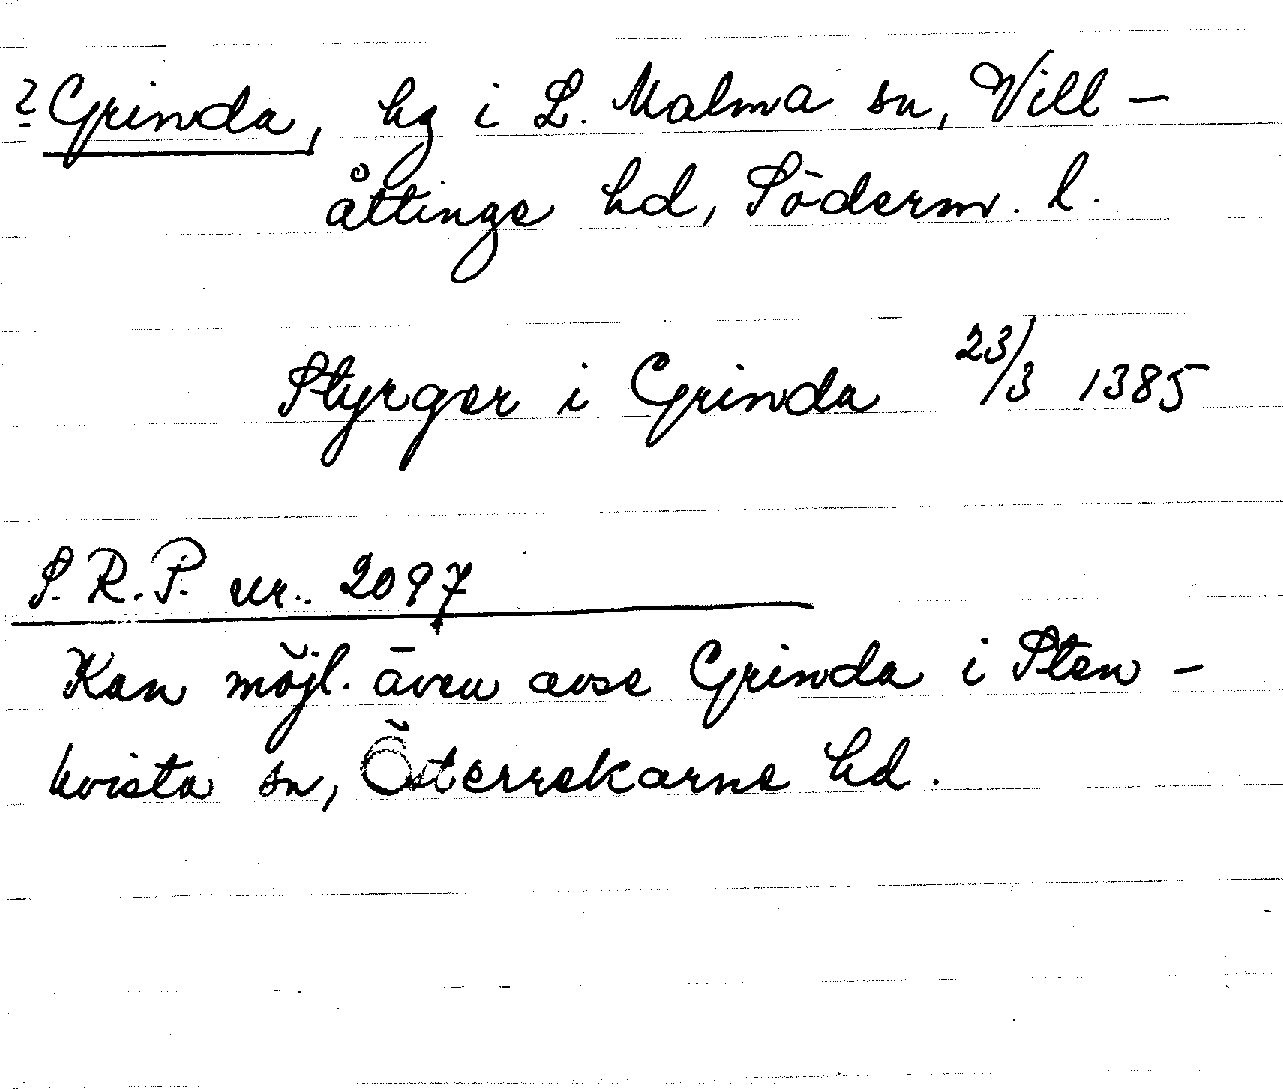 ? Grinda, hg i L. Malma sn, Vill-
åttinge hd, Söderm. l.
Styrger i Grinda 23/3 1385
S.R.P. nr. 2097
Kan möjl. även avse Grinda i Sten-
kvista sn, Österrekarne hd.